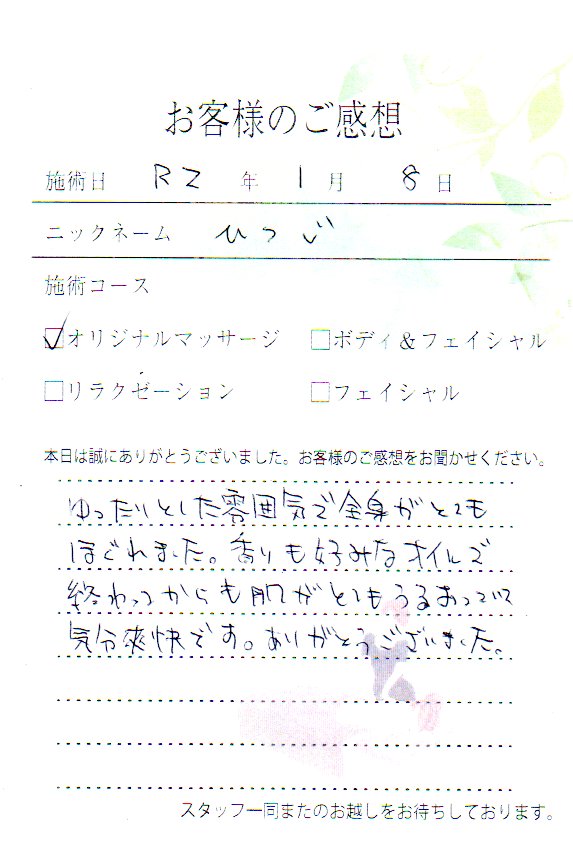 お客様のご感想
施術日 R2 年 1 月 8 日
ニックネーム ひつじ
施術コース
☑オリジナルマッサージ □ボディ&フェイシャル
□リラクゼーション □フェイシャル
本日は誠にありがとうございました。お客様のご感想をお聞かせください。
ゆったりとした雰囲気で全身がとても
ほぐれました。香りも好みなオイルで
終わってからも肌がとてもうるおっていて
気分爽快です。ありがとうございました。
スタッフ一同またのお越しをお待ちしております。